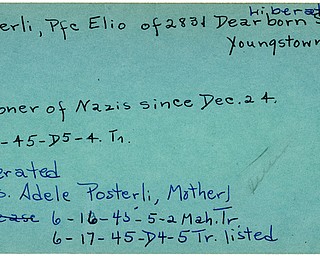 Liberated
erli, Pfc Elio of 2831 Dearborn S
Youngstown
oner of Nazis since Dec. 24.
-45-D5-4. Tr.
erated
s. Adele Posterli, Mother)
6-16-45-5-2 Mah. Tr.
6-17-45-D4-5 Tr. listed